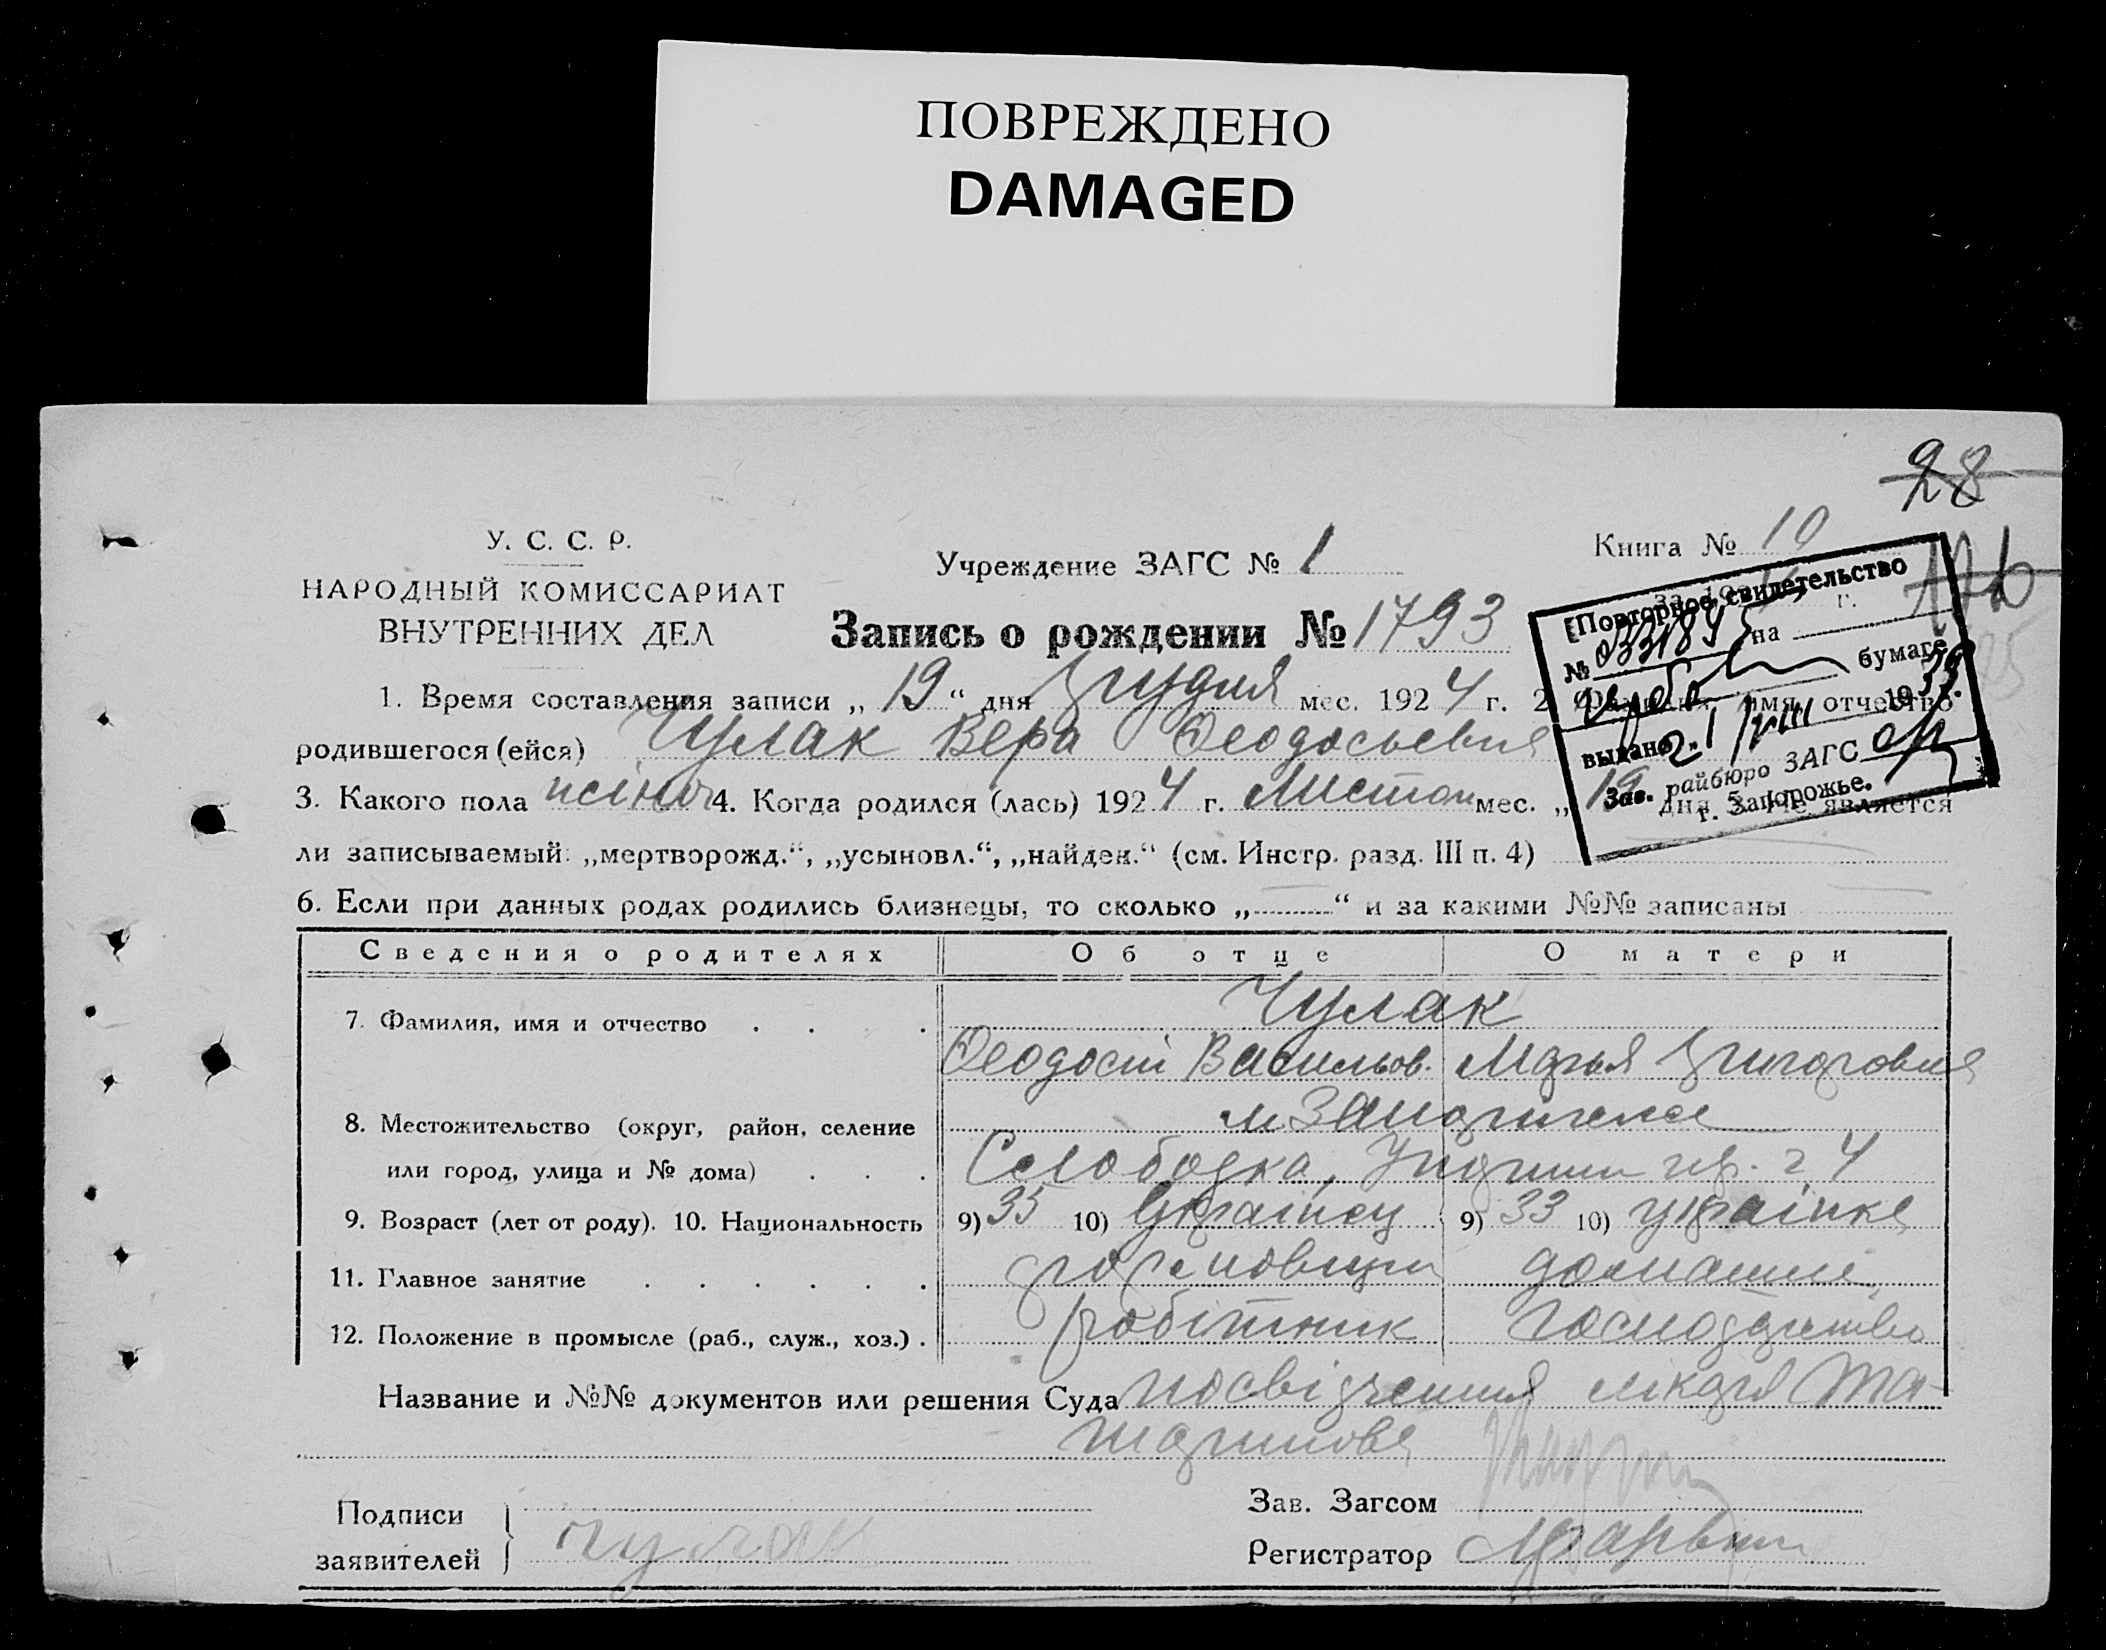 ПОВРЕЖДЕНО
DAMAGED
28
У. С. С. Р.
НАРОДНЫЙ КОМИССАРИАТ
ВНУТРЕННИХ ДЕЛ
Учреждение ЗАГС № 1
Книга № 10
Запись о рождении № 1793
Повторное свидетельство
№ на
бумаге
выдано
Зав. райбюро ЗАГС
г. Запорожье.
1. Время составления записи „ 19 “ дня Грудня мес. 1924 г. 2. Фамилия, имя, отчество
родившегося (ейся) Чулак Вера Феодосьевна
3. Какого пола жіноч 4. Когда родился (лась) 1924 г. Листоп мес. „ 19 дня 5. Не является
ли записываемый: „мертворожд.“, „усыновл.“, „найден.“ (см. Инстр. разд. III п. 4)
6. Если при данных родах родились близнецы, то сколько „ “ и за какими №№ записаны
Сведения о родителях Об отце О матери
7. Фамилия, имя и отчество Чулак
Феодосій Васильов. Марья Григоровна
8. Местожительство (округ, район, селение м Запоріжже
или город, улица и № дома) Слободка, 4
9. Возраст (лет от роду). 10. Национальность 9) 35 10) Українец 9) 33 10) українка
11. Главное занятие домашне
12. Положение в промысле (раб., служ., хоз.) робітник господарство
Название и №№ документов или решения Суда посвідчення лікаря
Подписи
заявителей Чулак
Зав. Загсом
Регистратор